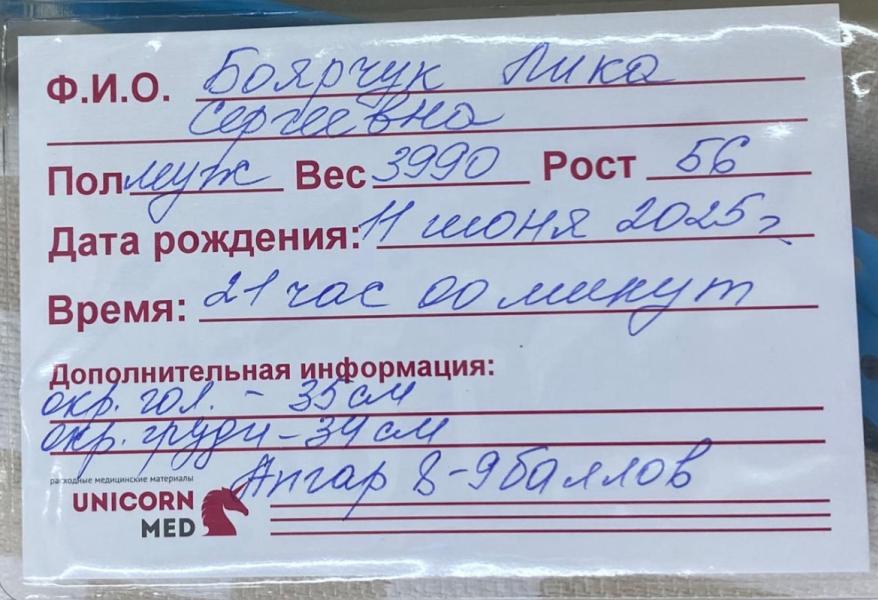 Ф.И.О. Боярчук Лика
Сергеевна
Пол муж Вес 3990 Рост 56
Дата рождения: 11 июня 2025 г
Время: 21 час 00 минут
Дополнительная информация:
окр. гол. - 35 см
окр. груди - 34 см
Апгар 8-9 баллов
расходные медицинские материалы
UNICORN
MED